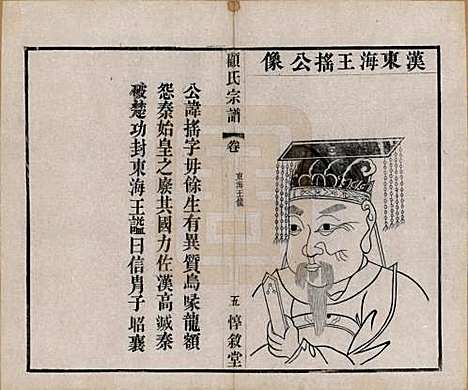 漢東海王搖公像
顧氏宗譜
卷
東海王像
五
惇敘堂
公諱搖字毋餘生有異質鳥喙龍顙
怨秦始皇之廢其國力佐漢高滅秦
破楚功封東海王諡曰信胄子昭襄